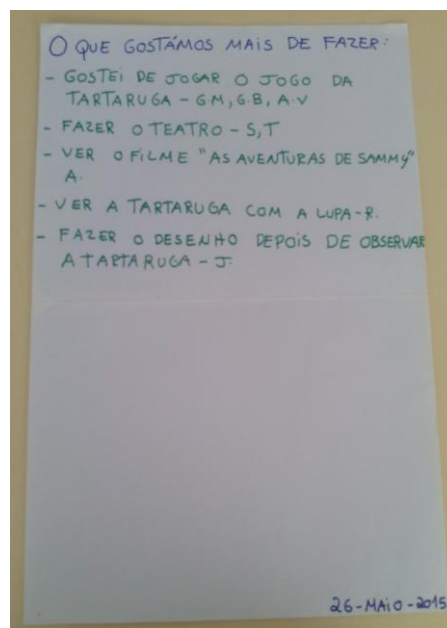 O QUE GOSTÁMOS MAIS DE FAZER:
- GOSTEI DE JOGAR O JOGO DA
TARTARUGA - G.M, G.B, A.V
- FAZER O TEATRO - S,T
- VER O FILME "AS AVENTURAS DE SAMMY"
A.
- VER A TARTARUGA COM A LUPA - R.
- FAZER O DESENHO DEPOIS DE OBSERVAR
A TARTARUGA - J.
26-MAIO-2015